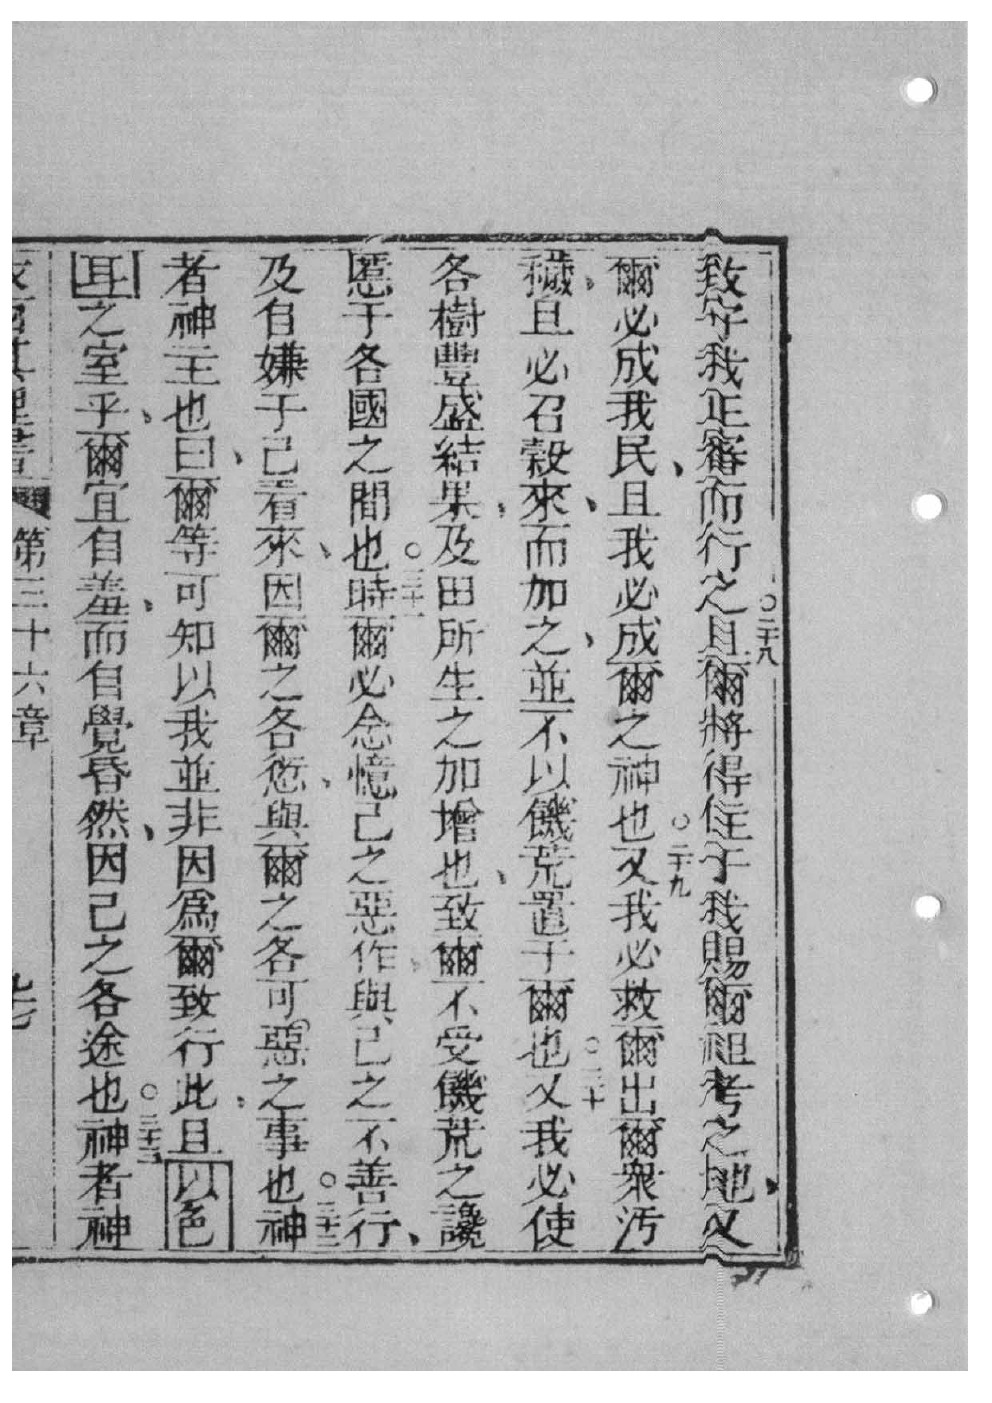 致守我正審而行之〇二十八且爾將得住于我賜爾祖考之地、又
爾必成我民、且我必成爾之神也〇二十九又我必救爾出爾衆汚
穢、且必召穀來、而加之、並不以饑荒置于爾也〇三十又我必使
各樹豐盛結果、及田所生之加增也、致爾不受饑荒之讒
慝于各國之間也〇三十一時爾必念憶己之惡作、與己之不善行、
及自嫌于己看來、因爾之各愆、與爾之各可惡之事也〇三十二神
者神主也曰、爾等可知以我並非因爲爾致行此、且以色
耳之室乎、爾宜自羞、而自覺昏然、因己之各途也〇三十三神者神
第三十六章